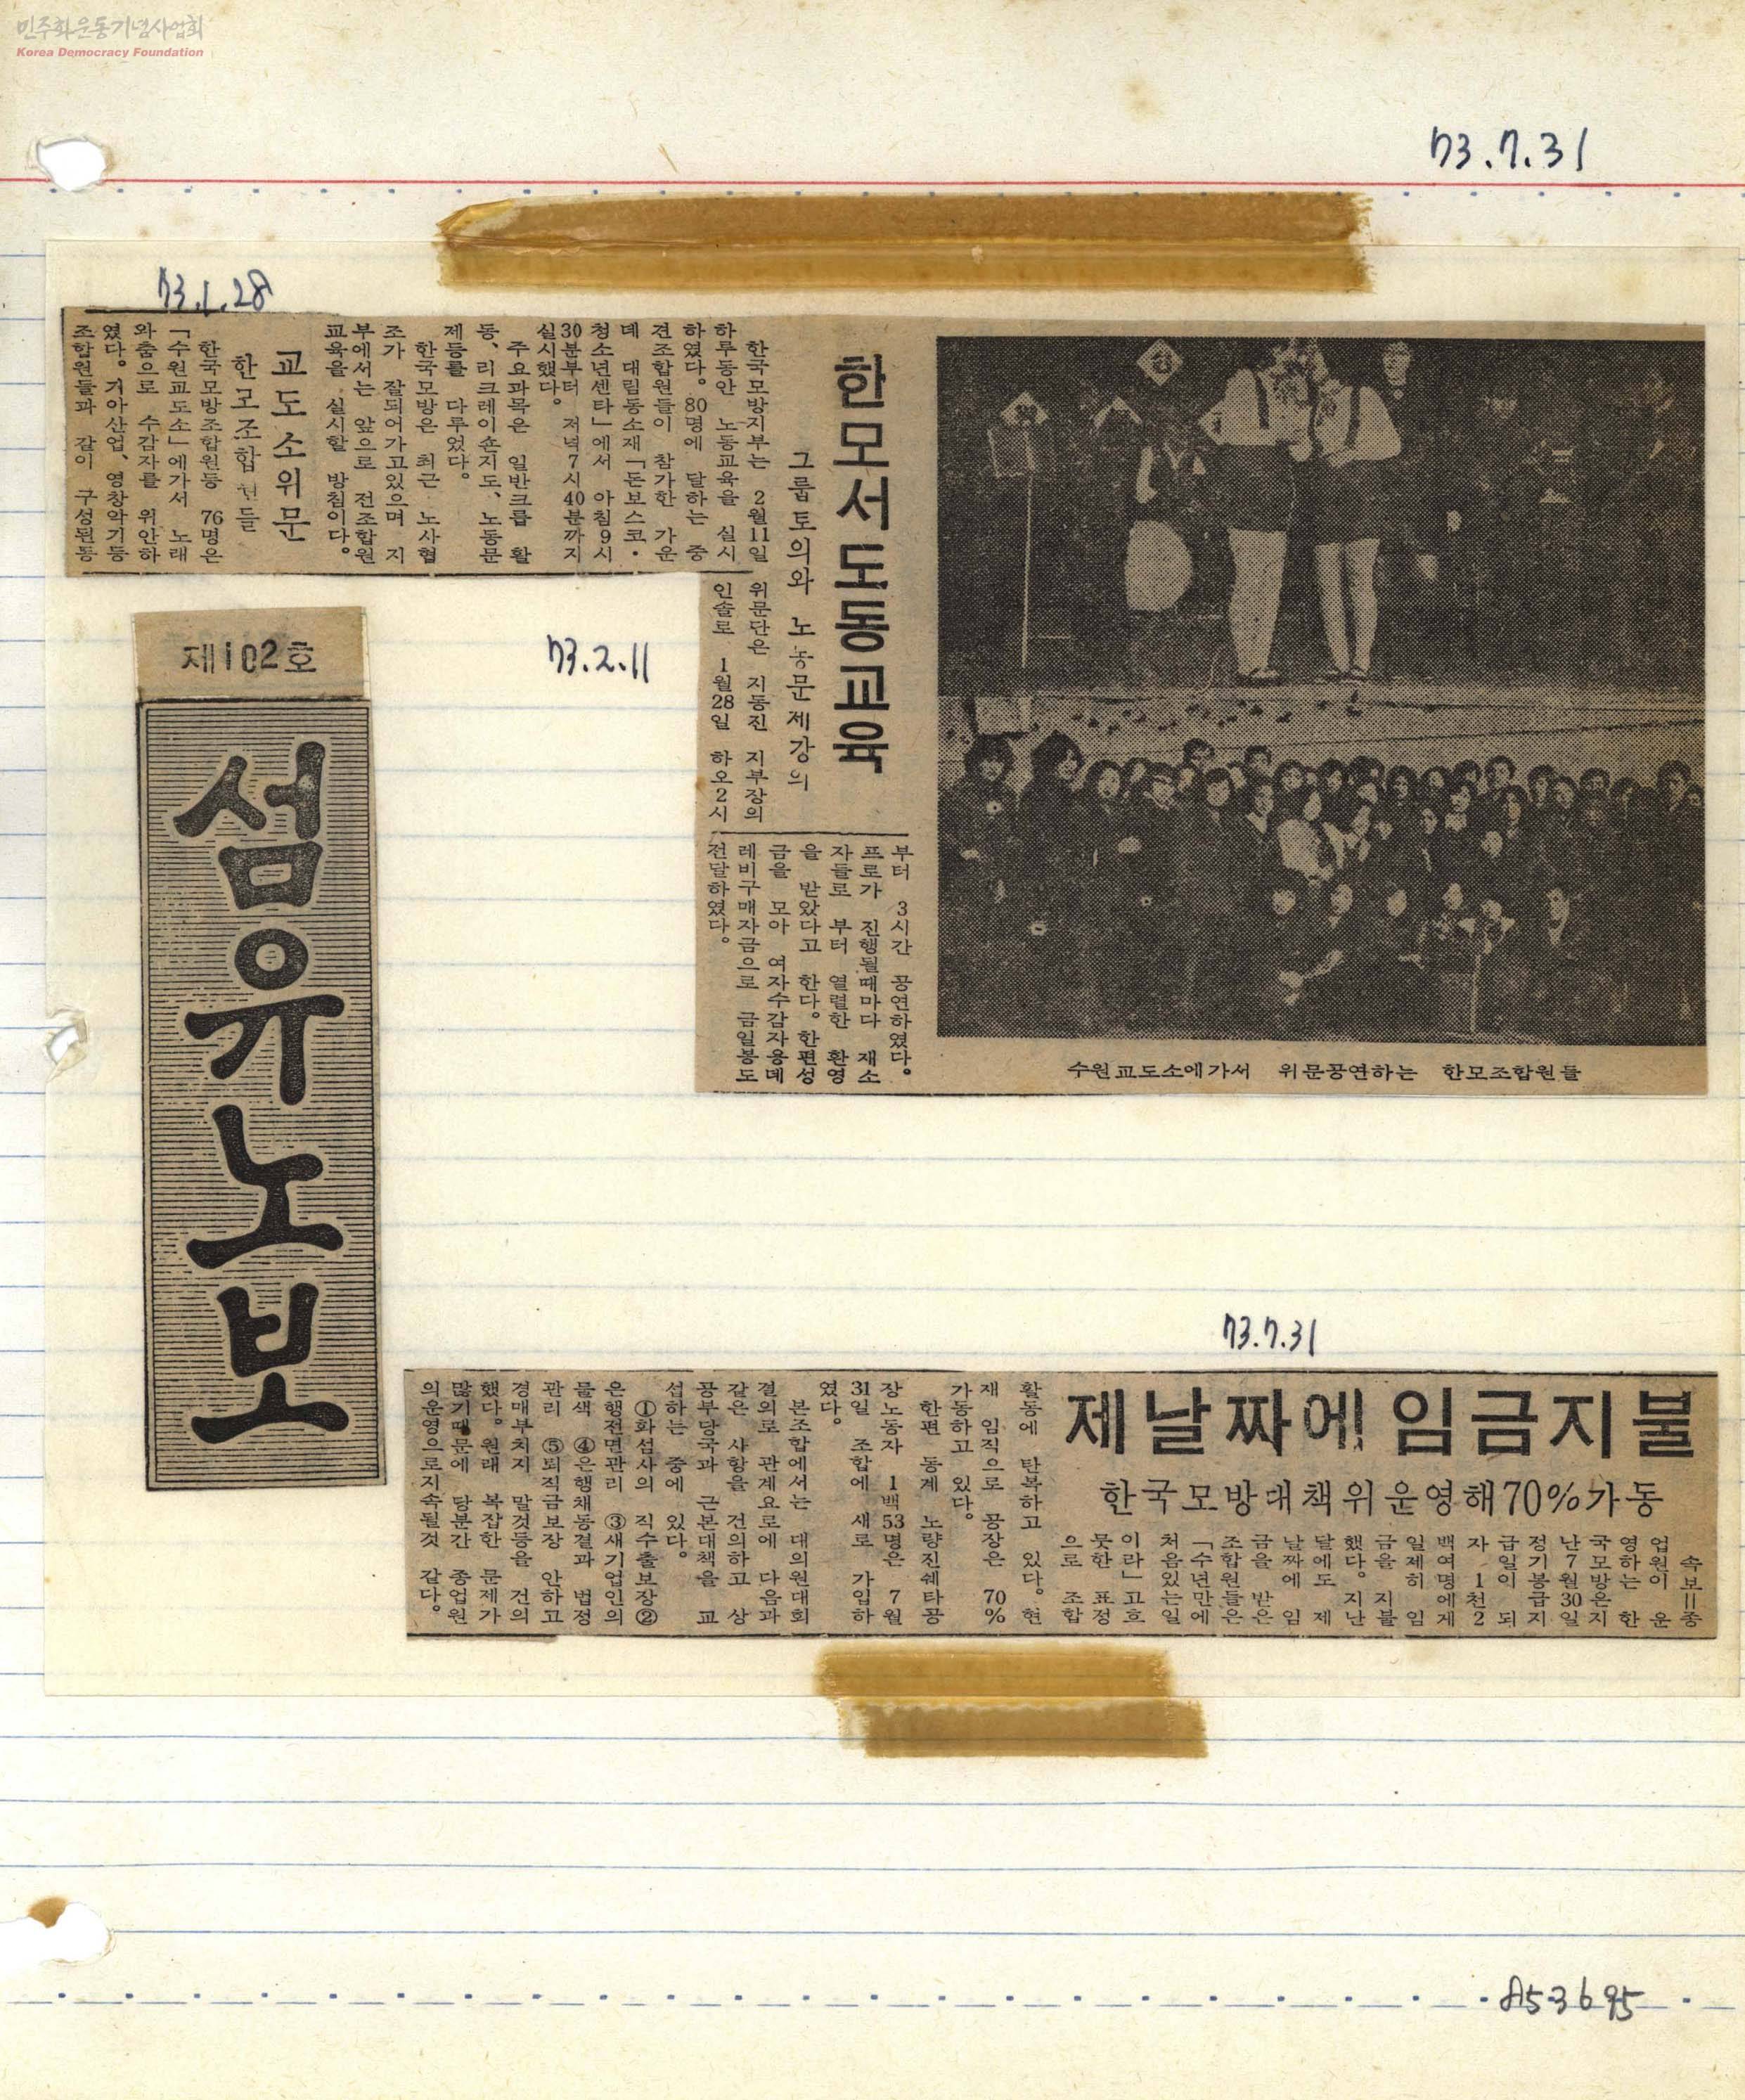 민주화운동기념사업회
Korea Democracy Foundation
73.7.31
73.1.28
한모서도동교육
그룹토의와 노동문제강의
한국모방지부는 2월11일
하루동안 노동교육을 실시
하였다. 80명에 달하는 중
견조합원들이 참가한 가운
데 대림동소재「돈보스코·
청소년센타」에서 아침9시
30분부터 저녁7시40분까지
실시했다.
주요과목은 일반크릅 활
동、리크레이숀지도、노동문
제등를 다루었다.
한국모방은 최근 노사협
조가 잘되어가고있으며 지
부에서는 앞으로 전조합원
교육을 실시할 방침이다。
교도소위문
한모조합원들
한국모방조합원등 76명은
「수원교도소」에가서 노래
와춤으로 수감자를 위안하
였다。기아산업、영창악기등
조합원들과 같이 구성된동
위문단은 지동진 지부장의
인솔로 1월28일 하오2시
부터 3시간 공연하였다。
프로가 진행될때마다 재소
자들로 부터 열렬한 환영
을 받았다고 한다。한편성
금을 모아 여자수감자용데
레비구매자금으로 금일봉도
전달하였다。
수원교도소에가서 위문공연하는 한모조합원들
제102호
섬유노보
73.2.11
73.7.31
제날짜에 임금지불
한국모방대책위운영해70%가동
속보=종
업원이 운
영하는 한
국모방은지
난7월30일
정기봉급지
급일이 되
자 1천2
백여명에게
일제히 임
금을 지불
했다。지난
달에도 제
날짜에 임
금을 받은
조합원들은
「수년만에
처음있는일
이라」고흐
뭇한 표정
으로 조합
활동에 탄복하고 있다。현
재 임직으로 공장은 70%
가동하고 있다。
한편 동계 노량진쉐타공
장노동자 1백53명은 7월
31일 조합에 새로 가입하
였다。
본조합에서는 대의원대회
결의로 관계요로에 다음과
같은 사항을 건의하고 상
공부당국과 근본대책을 교
섭하는 중에 있다。
①화섬사의 직수출보장②
은행전면관리 ③새기업인의
물색 ④은행채동결과 법정
관리 ⑤퇴직금보장 안하고
경매부치지 말것등을 건의
했다。원래 복잡한 문제가
많기때문에 당분간 종업원
의운영으로지속될것 같다。
A53695